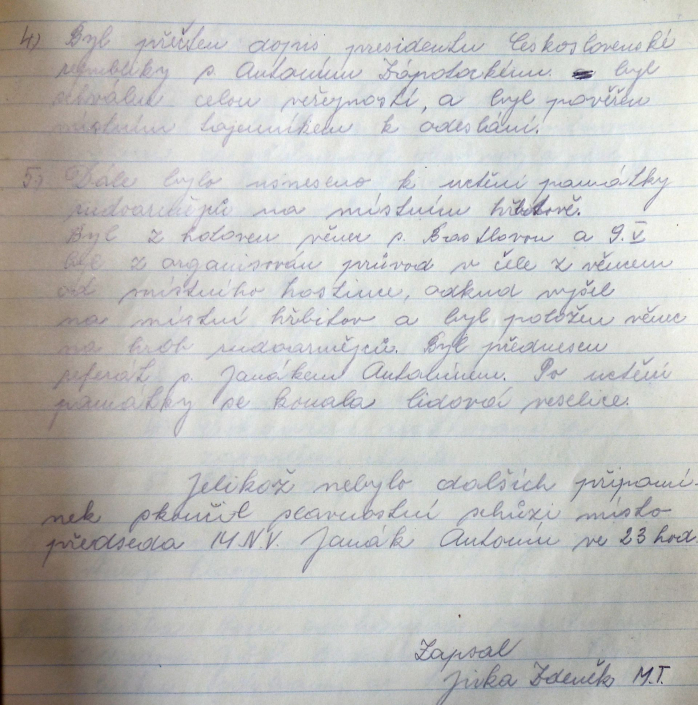 4) Byl přečten dopis presidentu Československé
republiky s. Antonínu Zápotockému. byl
schválen celou veřejností, a byl pověřen
místním tajemníkem k odeslání.
5) Dále bylo usneseno k uctění památky
rudoarmějců na místním hřbitově.
Byl z hotoven věnec s. Bastlovou a 9. V
byl z organisován průvod v čele z věncem
od místního hostince, odkud vyšel
na místní hřbitov a byl položen věnec
na hrob rudoarmějců. Byl přednesen
referát s. Janákem Antonínem. Po uctění
památky se konala lidová veselice.
Jelikož nebylo dalších připomí-
nek skončil slavnostní schůzi místo
předseda M.N.V. Janák Antonín ve 23 hod.
Zapsal
Jirka Zdeněk M.T.